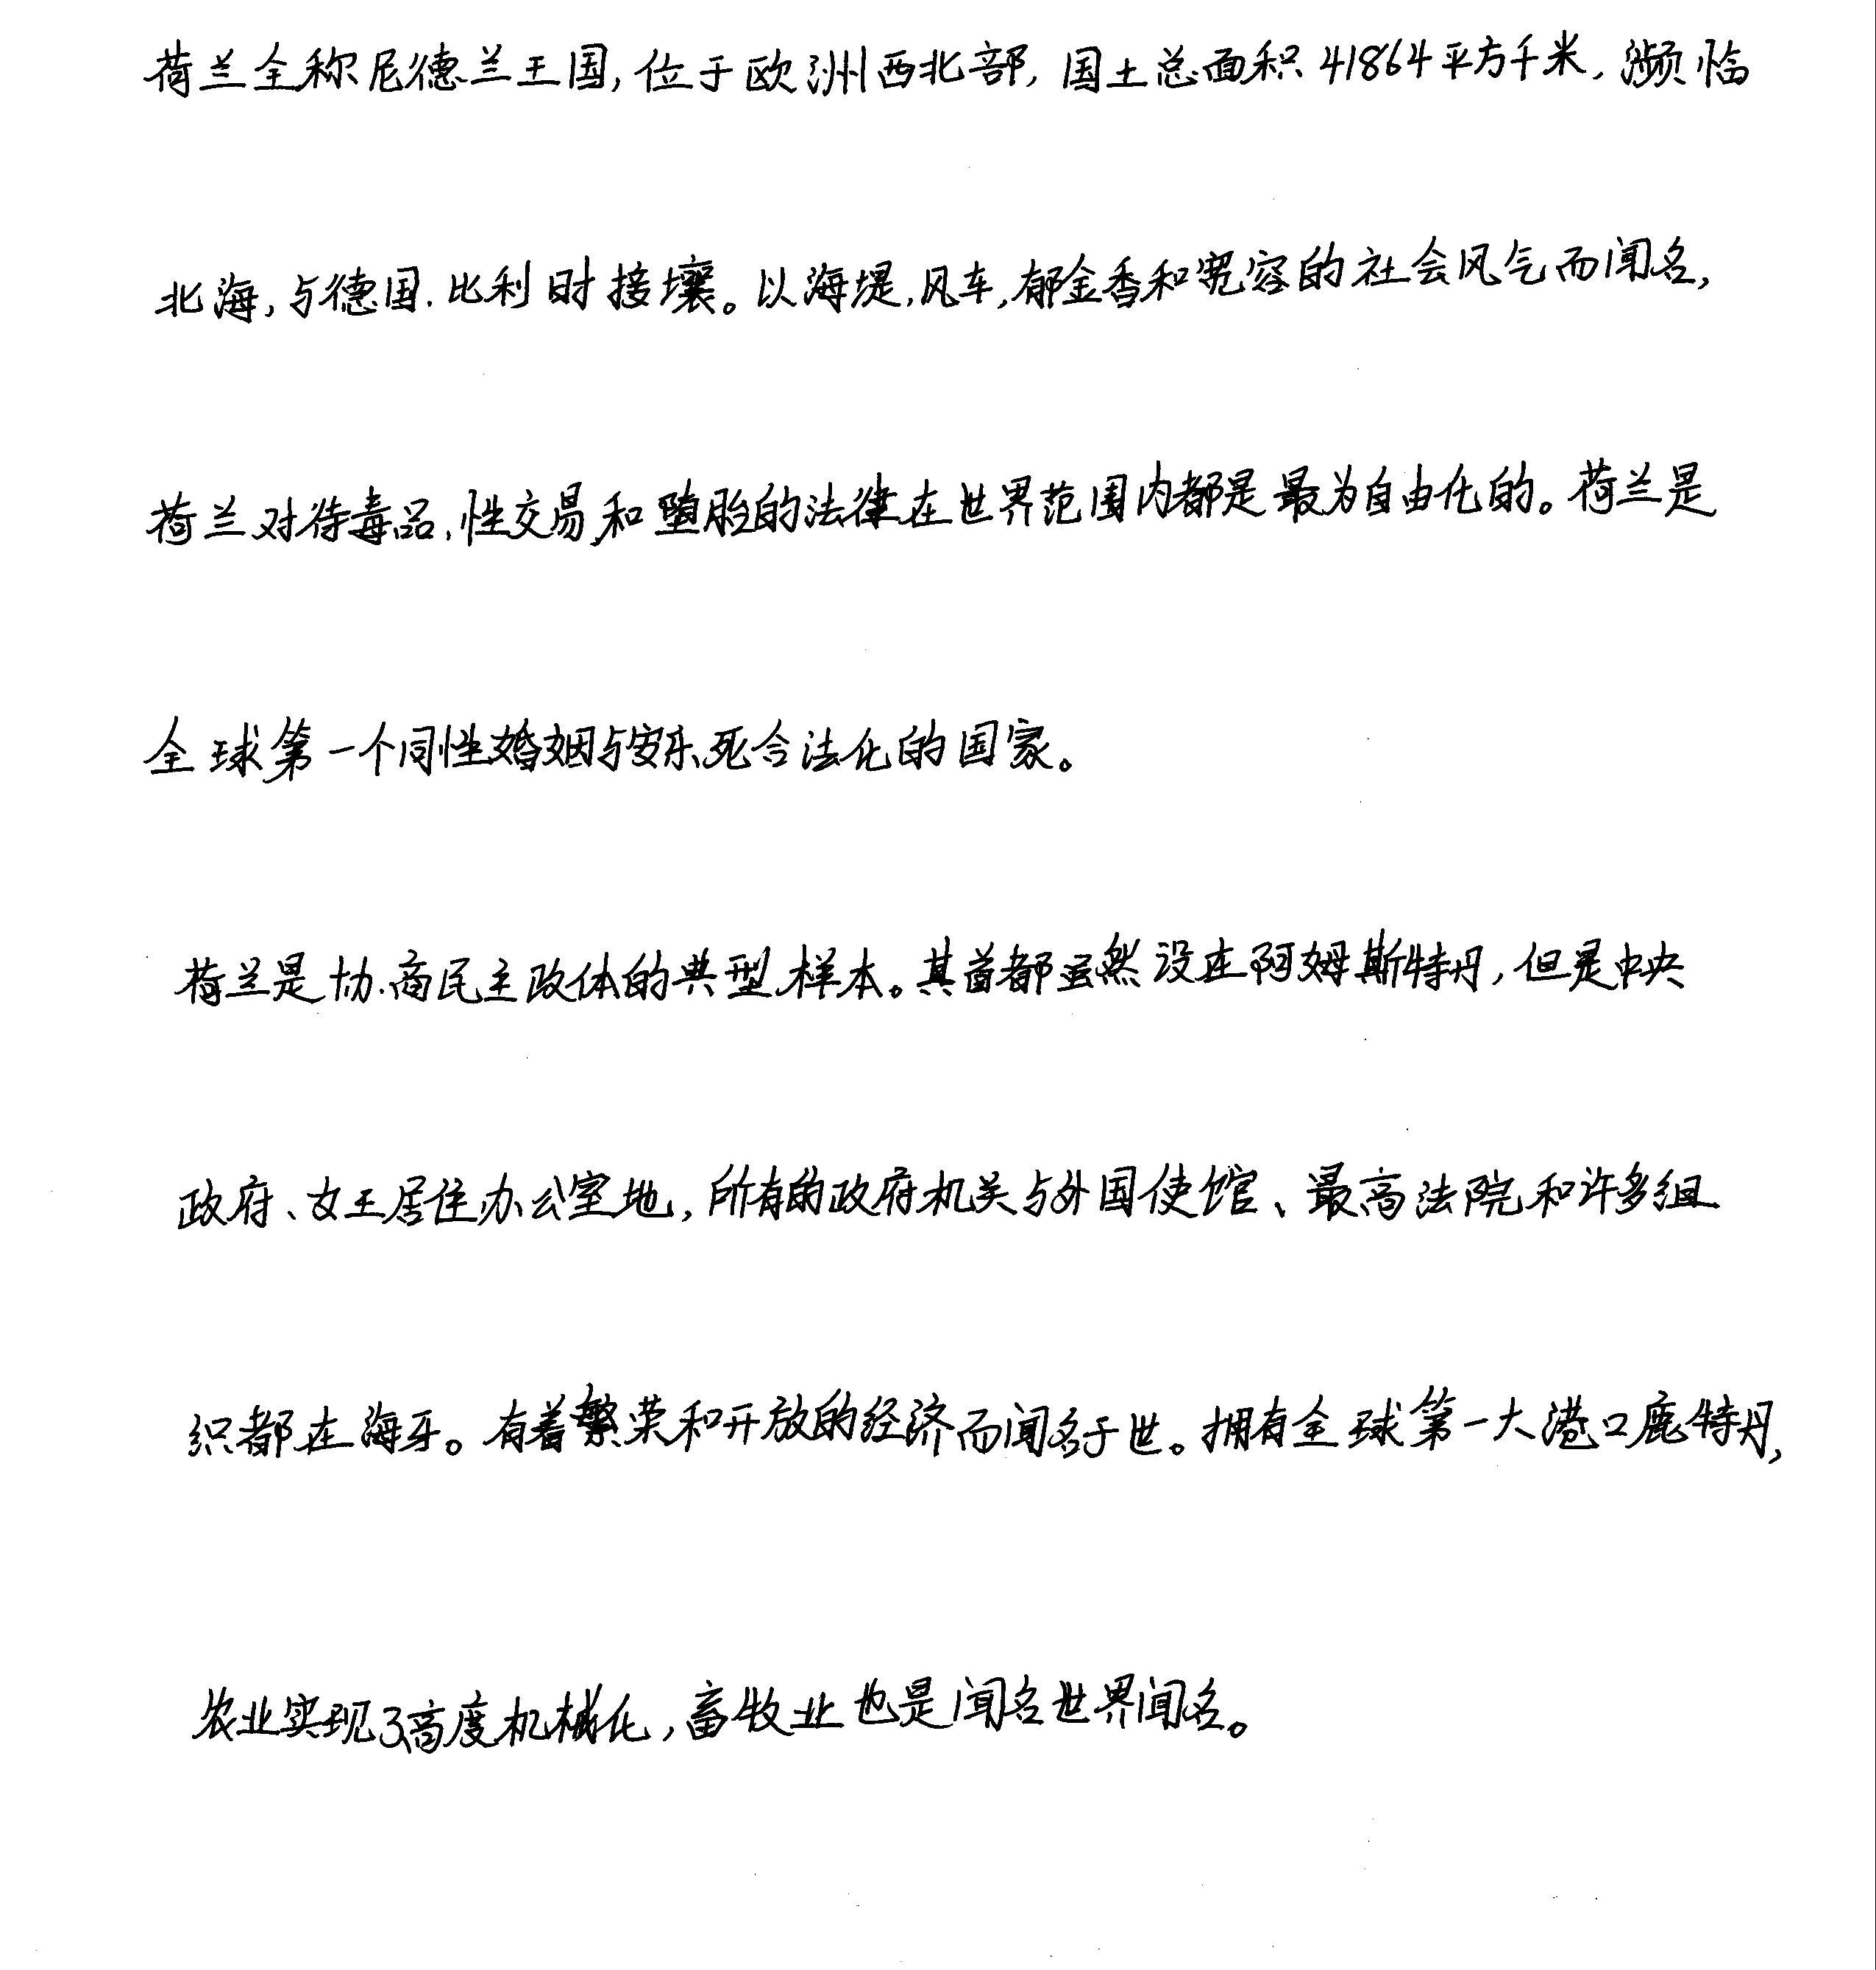 荷兰全称尼德兰王国,位于欧洲西北部,国土总面积41864平方千米,濒临
北海,与德国.比利时接壤。以海堤,风车,郁金香和宽容的社会风气而闻名,
荷兰对待毒品,性交易,和堕胎的法律在世界范围内都是最为自由化的。荷兰是
全球第一个同性婚姻与安乐死合法化的国家。
荷兰是协商民主政体的典型样本。其首都虽然设在阿姆斯特丹,但是中央
政府、女王居住办公室地,所有的政府机关与外国使馆、最高法院和许多组
织都在海牙。有着繁荣和开放的经济而闻名于世。拥有全球第一大港口鹿特丹,
农业实现了高度机械化,畜牧业也是闻名世界闻名。